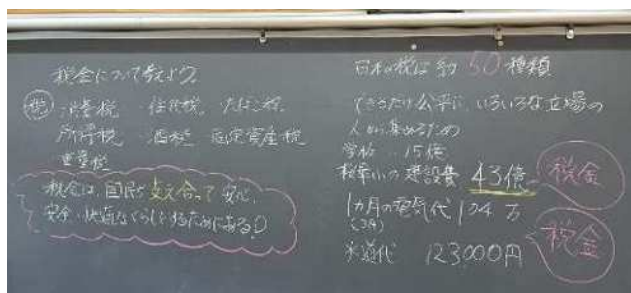 税金について考えよう
税 ・消費税 ・住民税 ・たばこ税
所得税 ・酒税 固定資産税
重量税
税金は、国民が支え合って安心、
安全・快適なくらしをするためにある。
日本の税は約50種類
できるだけ公平に、いろいろな立場の
人から集めるため
学校…15億
の建設費 43億 税金
1ヵ月の電気代 104万
水道代 123000円 税金